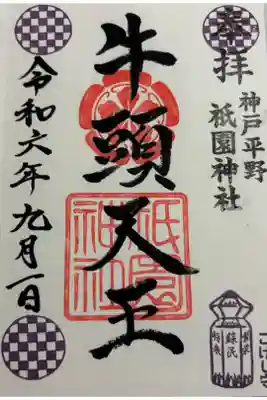 奉拝
神戸平野
祇園神社
牛頭天王
祇園神社
令和六年九月一日
蘇民
将来